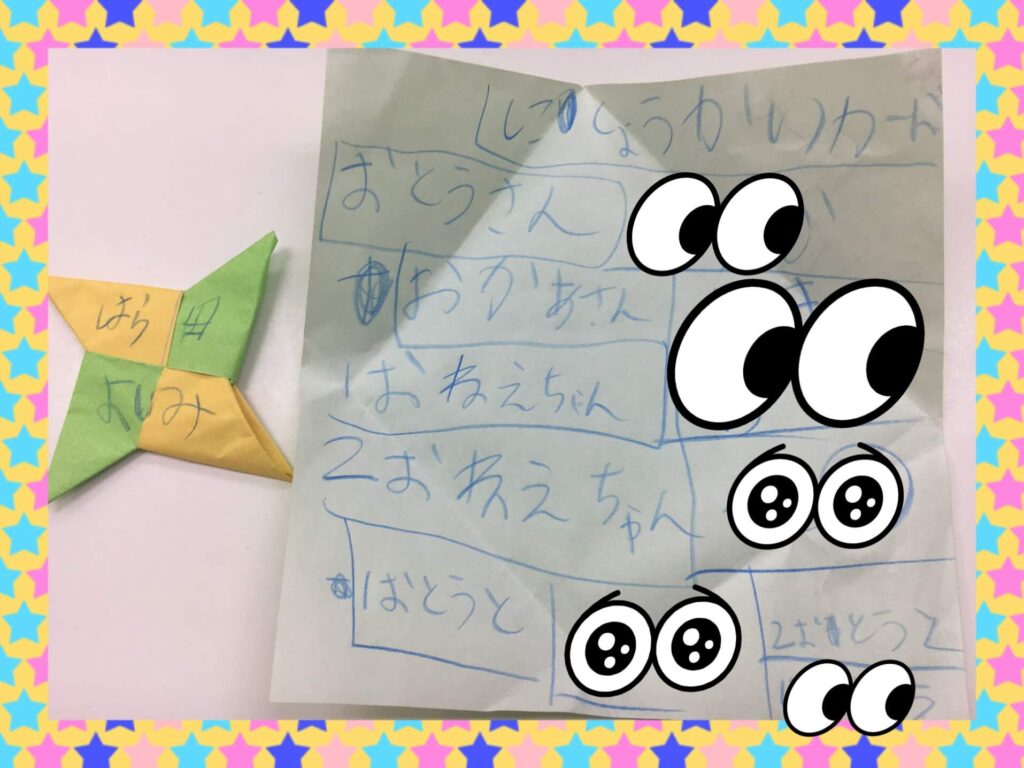 はら田
よしみ
じこしょうかいカード
おとうさん
おかあさん
1おねえちゃん
2おねえちゃん
1おとうと
2おとうと